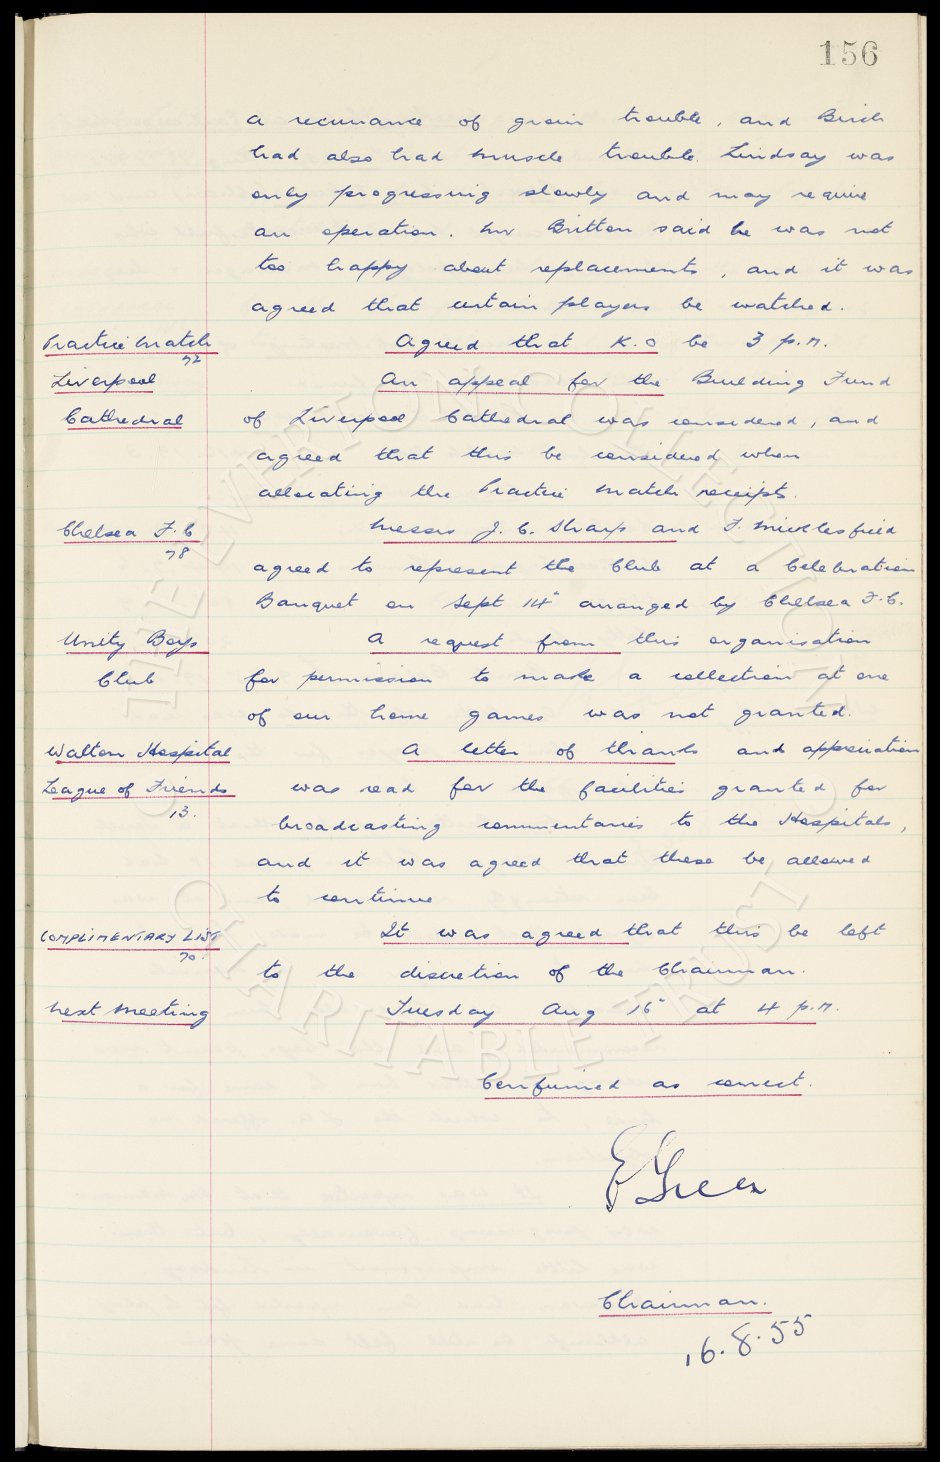 156
a recurrance of groin trouble, and Birch
had also had muscle trouble. Lindsay was
only progressing slowly and may require
an operation. Mr Britton said he was not
too happy about replacements, and it was
agreed that certain players be watched.
Practice Match Agreed that K.O be 3 p.m.
72
Liverpool An appeal for the Building Fund
Cathedral of Liverpool Cathedral was considered, and
agreed that this be considered when
allocating the Practice Match receipts.
Chelsea F.C Messrs J. C. Sharp and F. Micklesfield
78
agreed to represent the Club at a Celebration
Banquet on Sept 14" arranged by Chelsea F.C.
Unity Boys A request from this organisation
Club for permission to make a collection at one
of our home games was not granted.
Walton Hospital A letter of thanks and appreciation
League of Friends was read for the facilities granted for
13.
broadcasting commentaries to the Hospitals,
and it was agreed that these be allowed
to continue
COMPLIMENTARY LIST It was agreed that this be left
70.
to the discretion of the Chairman.
Next Meeting Tuesday Aug 16" at 4 p.m.
Confirmed as correct.
E Green
Chairman.
16.8.55
THE EVERTON COLLECTION
CHARITABLE TRUST